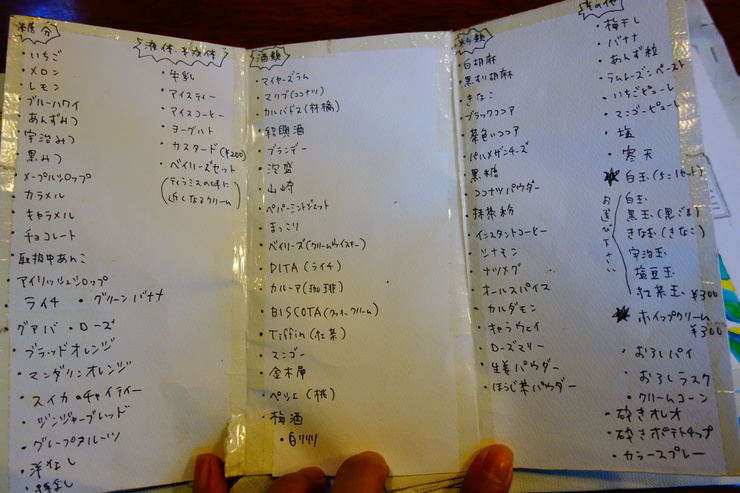 糖分
・いちご
・メロン
・レモン
・ブルーハワイ
・あんずみつ
・宇治みつ
・黒みつ
・メープルシロップ
・カラメル
・キャラメル
・チョコレート
・取扱中あんこ
・アイリッシュシロップ
・ライチ ・グリーンバナナ
・グアバ ・ローズ
・ブラッドオレンジ
・マンダリンオレンジ
・スイカ ・チャイティー
・ジンジャーブレッド
・グレープフルーツ
・洋なし
液体・半固体
・牛乳
・アイスティー
・アイスコーヒー
・ヨーグルト
・カスタード(¥200)
・ベイリーズセット
(ティラミスの味に
近くなるクリーム)
酒類
・マイヤーズラム
・マリブ(ココナツ)
・カルバドス(林檎)
・紹興酒
・ブランデー
・泡盛
・山崎
・ペパーミントジェット
・まっこり
・ベイリーズ(クリームウイスキー)
・DITA(ライチ)
・カルーア(珈琲)
・BISCOTA(クッキークリーム)
・Tiffin(紅茶)
・マンゴー
・金木犀
・ペシェ(桃)
・梅酒
粉類
・白胡麻
・黒すり胡麻
・きなこ
・ブラックココア
・茶色いココア
・パルメザンチーズ
・黒糖
・ココナツパウダー
・抹茶粉
・インスタントコーヒー
・シナモン
・ナツメグ
・オールスパイス
・カルダモン
・キャラウェイ
・ローズマリー
・生姜パウダー
・ほうじ茶パウダー
その他
・梅干し
・バナナ
・あんず粒
・ラムレーズンペースト
・いちごピューレ
・マンゴーピューレ
・塩
・寒天
★白玉(5コ1セット)
お選び下さい
・白玉
・黒玉(黒ごま)
・きな玉(きなこ)
・宇治玉
・塩豆玉
・紅茶玉 ¥300
★ホイップクリーム
¥300
・おろしパイ
・おろしラスク
・クリームコーン
・砕きオレオ
・砕きポテトチップ
・カラースプレー